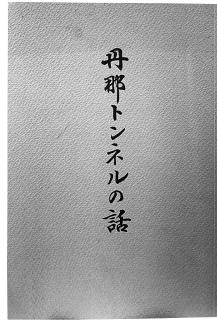 丹那トンネルの話